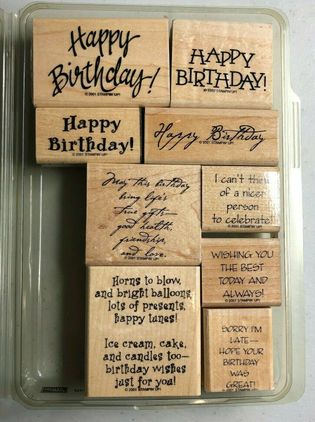 Happy
Birthday!
© 2001 STAMPIN' UP!
HAPPY
BIRTHDAY!
© 2001 STAMPIN' UP!
Happy
Birthday!
© 2001 STAMPIN' UP!
Happy Birthday
© 2001 STAMPIN' UP!
May this birthday
bring life's
true gifts—
good health,
friendship,
and love.
© 2001 STAMPIN' UP!
I can't think
of a nicer
person
to celebrate!
© 2001 STAMPIN' UP!
WISHING YOU
THE BEST
TODAY AND
ALWAYS!
© 2001 STAMPIN' UP!
Horns to blow,
and bright balloons,
lots of presents,
happy tunes!
Ice cream, cake,
and candles too—
birthday wishes
just for you!
© 2001 STAMPIN' UP!
SORRY I'M
LATE—
HOPE YOUR
BIRTHDAY
WAS
GREAT!
© 2001 STAMPIN' UP!